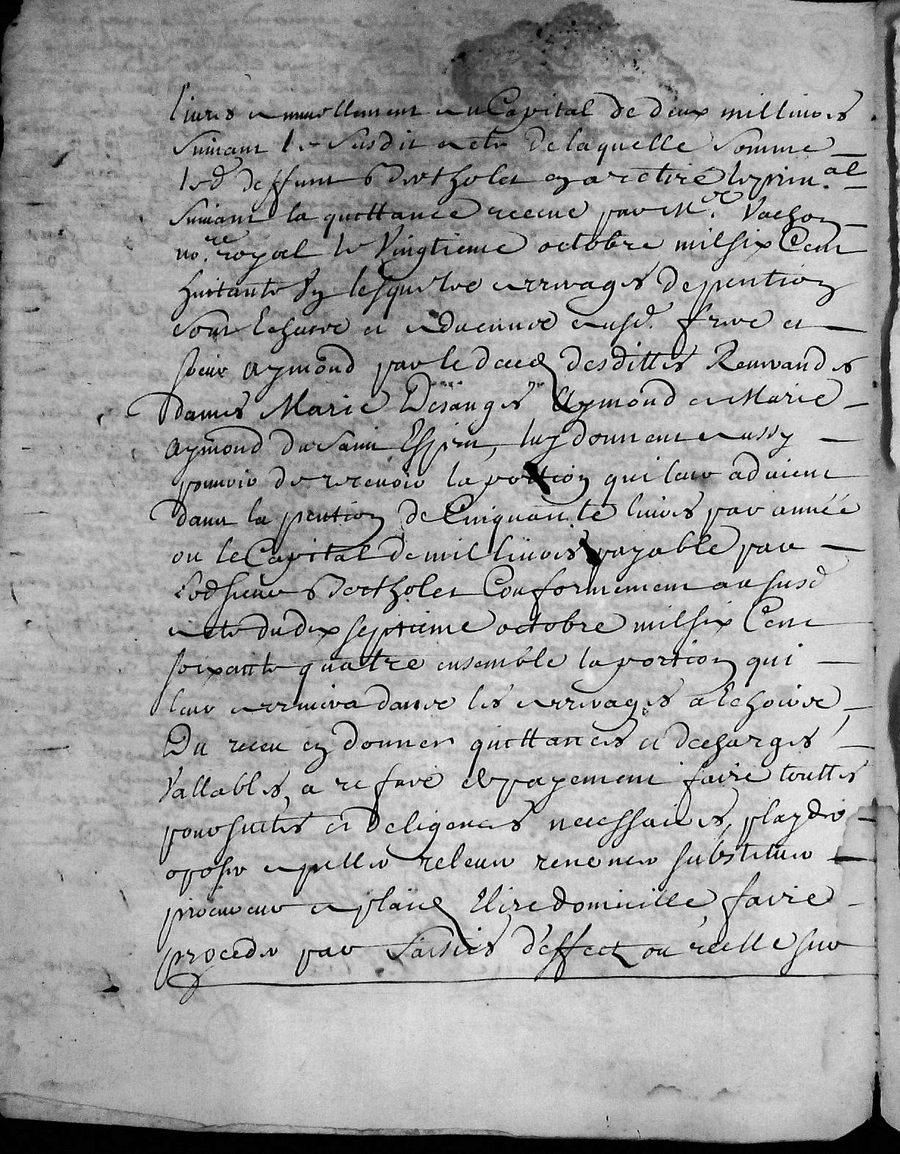 livres annuellement au Capital de deux mil livres
suivant le susdit acte de laquelle somme
led. deffunt Bertholet en a retiré le prin.al
suivant la quittance receue par M.e Vachon
no.re royal le Vingtieme octobre mil six Cent
huitante lesquels arrivages de pention
sont echeue et advenue ausd. frere et
sieur Aymond par le deces desdittes Reverandes
dames Marie Desanges Aymond et Marie
Aymond du Saint Esprit, luy donnent aussy
pouvoir de recevoir la portion qui leur advient
dans la pention de Cinquante livres par année
ou le Capital de mil livres payable par
led sieur Bertholet Conformement au susd
acte du dix septieme octobre mil six Cent
soixante quatre ensemble la portion qui
leur arrivera dans les arrivages a echoire,
Du receu en donner quittances et decharges
Vallables, a refus de payement faire touttes
poursuittes et deligences necessaires, playder
oposer apeller relever renoncer substituer
procureur a plaid Elire domicille faire
proceder par saisies d'effect ou réelle sur